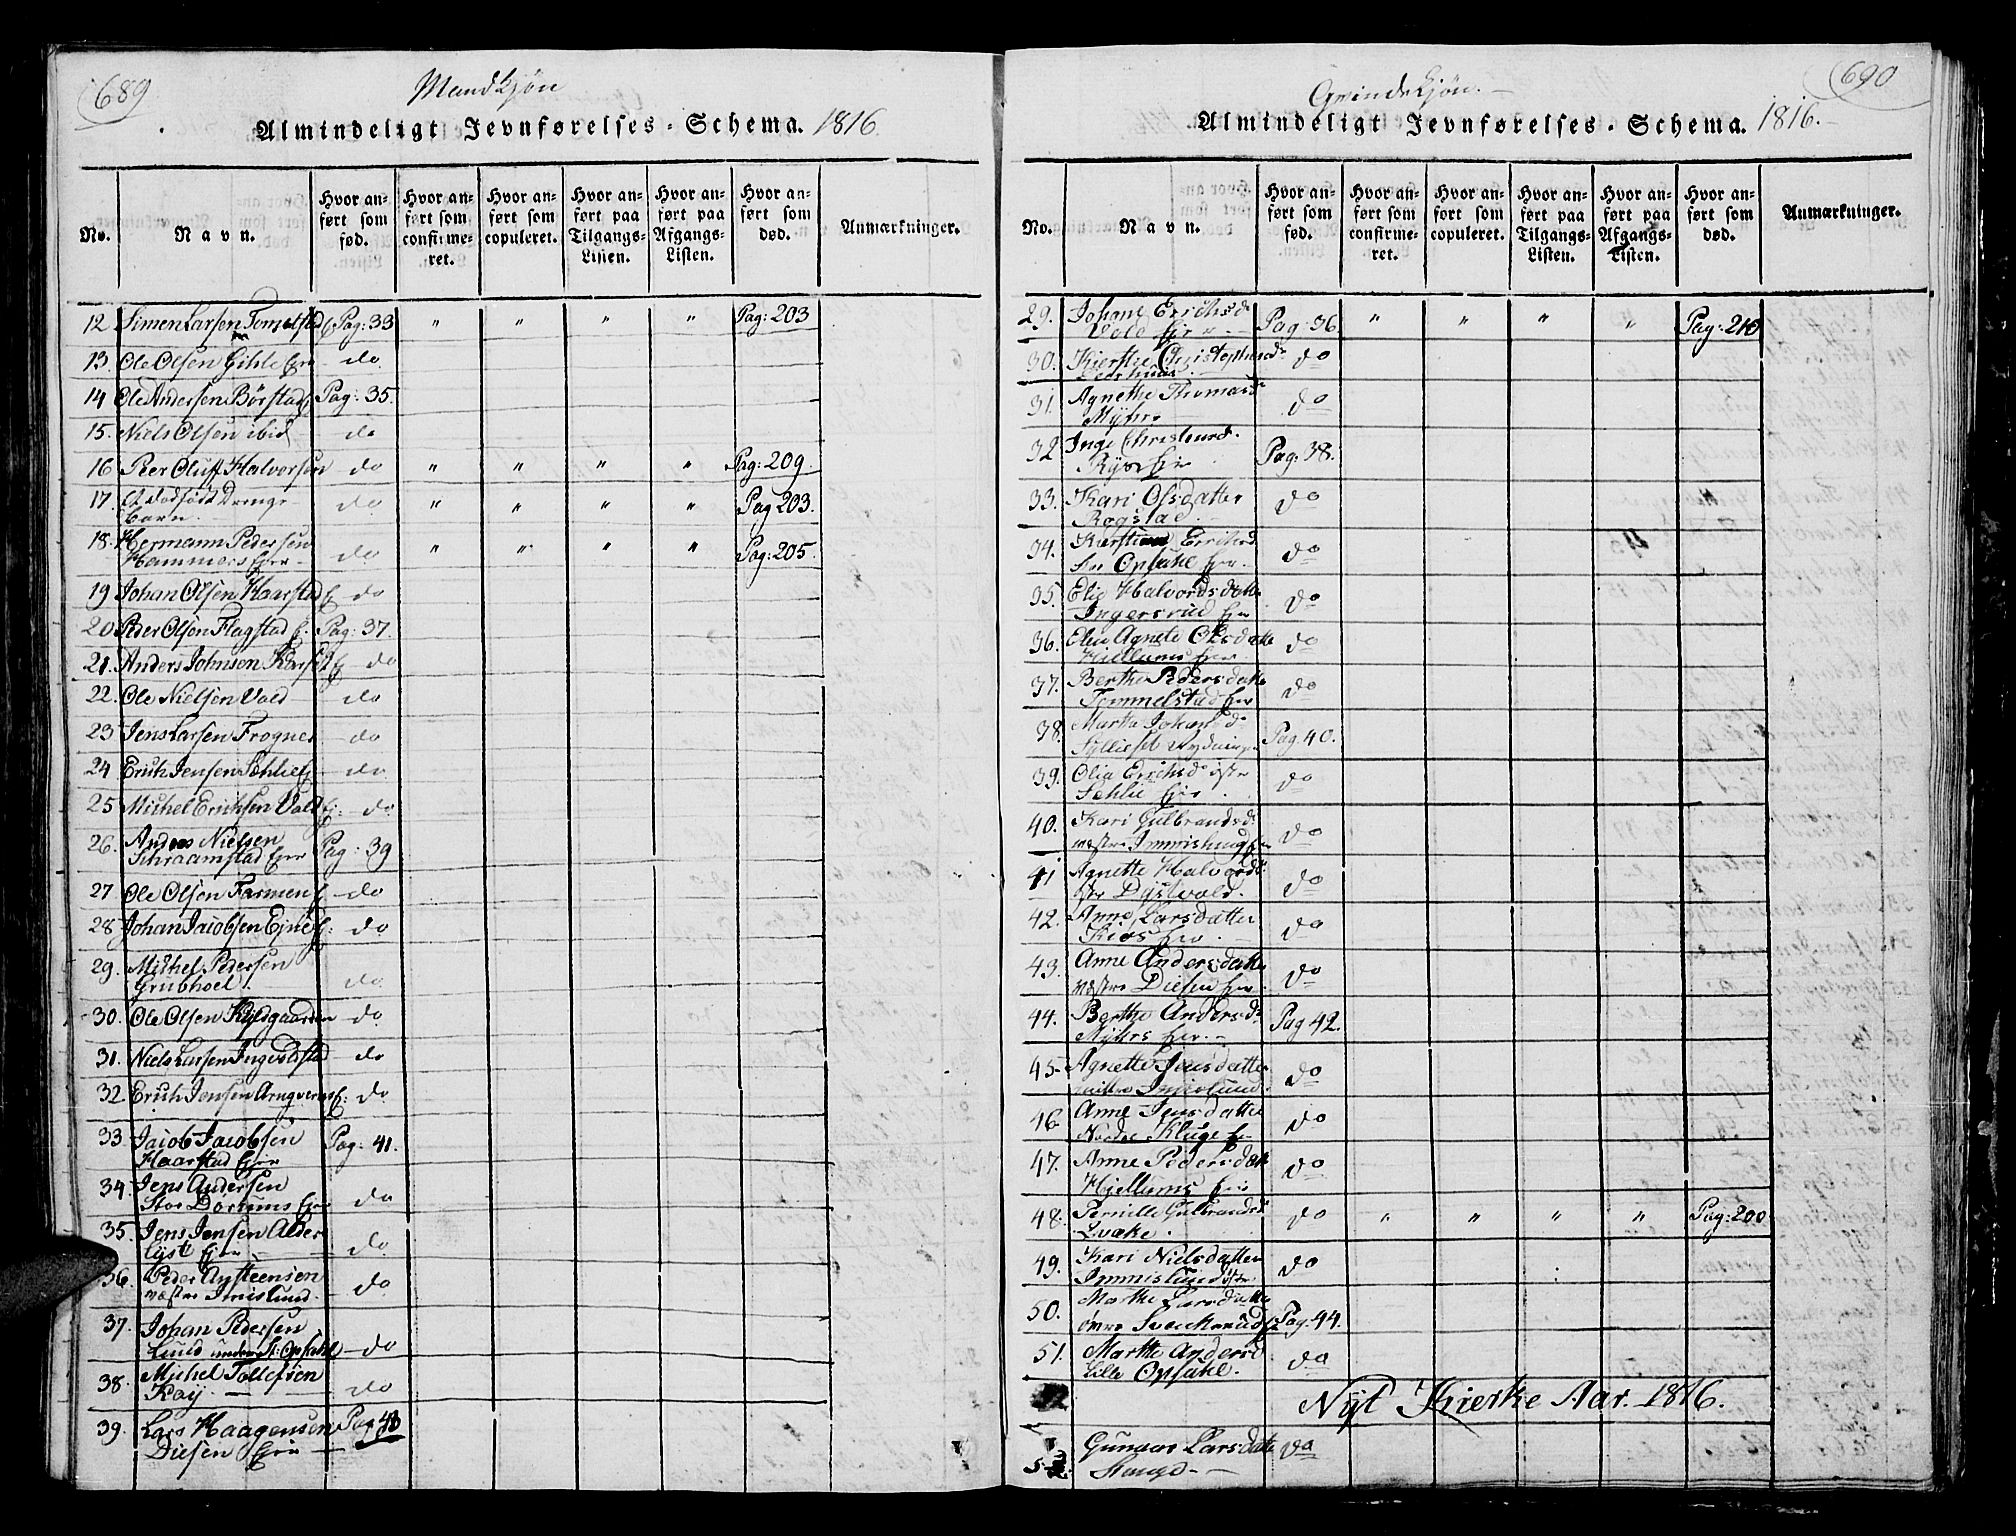 689
Mandkjön
Almindeligt Jevnførelses-Schema. 1816
No.
Navn.
Hvor anført som fød.
Hvor anført som confirmeret.
Hvor anført som copuleret.
Hvor anført paa Tilgangs-Listen.
Hvor anført paa Afgangs-Listen.
Hvor anført som død.
Anmærkninger.
12 Simen Larsen Tomelstad E Pag: 33 " " " " Pag: 203
13. Ole Olsen Gihle Eie do
14 Ole Andersen Börstad Pag: 35.
15. Niels Olsen ibid do
16 Peer Oluff Halvorsen do " " " " Pag: 209.
17. et dødfødt Drenge
barn. do " " " " Pag 203.
18. Hermann Pedersen
Hammers Eier do " " " " Pag: 205.
19 Johan Olsen Haarstad E do
20 Peder Olsen Flagstad E. Pag: 37.
21. Anders Johnsen E do
22. Ole Nielsen Vold do
23 Jens Larsen Frogner do
24 Erich Jensen Sehlie E do
25 Michel Erichsen Vold E: do
26. Andreas Nielsen
Schraamstad Eier Pag: 39
27 Ole Olsen Farmen E do
28 Johan Jacobsen Ejne E: do
29. Michel Pedersen
Grubhoel. do
30. Ole Olsen do
31. Niels Larsen Ingevalstad do
32. Erich Jensen Arnqverns E: do
33. Jacob Jacobsen
Haarstad Eier Pag: 41.
34. Jens Andersen
Stor Dörums Eier do
35. Jens Jensen Alder
lyst Eier do
36. Peder Aysteensen
væstre Imislund. do
37. Johan Pedersen
Lund under St: Opsahl do
38. Michel Tollefsen
Kaÿ. do
39. Lars Haagensen
Diesen Eier Pag 43
690
Qvindekjön.
Almindeligt Jevnførelses-Schema. 1816.
No.
Navn.
Hvor anført som fød.
Hvor anført som confirmeret.
Hvor anført som copuleret.
Hvor anført paa Tilgangs-Listen.
Hvor anført paa Afgangs-Listen.
Hvor anført som død.
Anmærkninger.
29. Johane Erichsd
Vold Eie Pag: 36 " " " " Pag: 210
30. Kierstie Christophersd
do
31. Agnethe Thomasd
Myhre do
32 Inge Christensd.
Eie Pag: 38.
33. Kari Olsdatter
Rogstad do
34. Kiersti Erichsd
Opsahl Eier. do
35. Elie Halvordsdatter
Ingersrud Eie do
36. Elen Agnete Olsdatter
Hjellums Eier do
37. Berthe Pedersdatter
Tommelstad Eier do
38. Marthe Johansd
Pag 40.
39. Olia Erichsd østre
Sehlie Eie do
40. Kari Gulbrandsd
væstre Immishaug Eie do
41 Agnette Halvord
østre Dystvold. do
42. Anne Larsdatter
Kiøs Eie do
43. Anne Andersdatter
væstre Diesen Eie. do
44. Berthe Andersd
Myhrs Eie. Pag 42.
45. Agnette Jensdatter
Imislund. do
46. Anne Jensdatter
Nordre Kluge E do
47. Anne Pedersdatter
Hjellums Eie do
48. Pernille Gulbrandsd
Qvæke. do " " " " Pag: 200
49. Kari Nielsdatter
Immislund østre do
50. Marthe Larsdatter
Pag. 44.
51. Marthe Andersd
Lille Opsahl. do
Nyt Kierke Aar. 1816.
Gunnor Larsdatter
Stange do